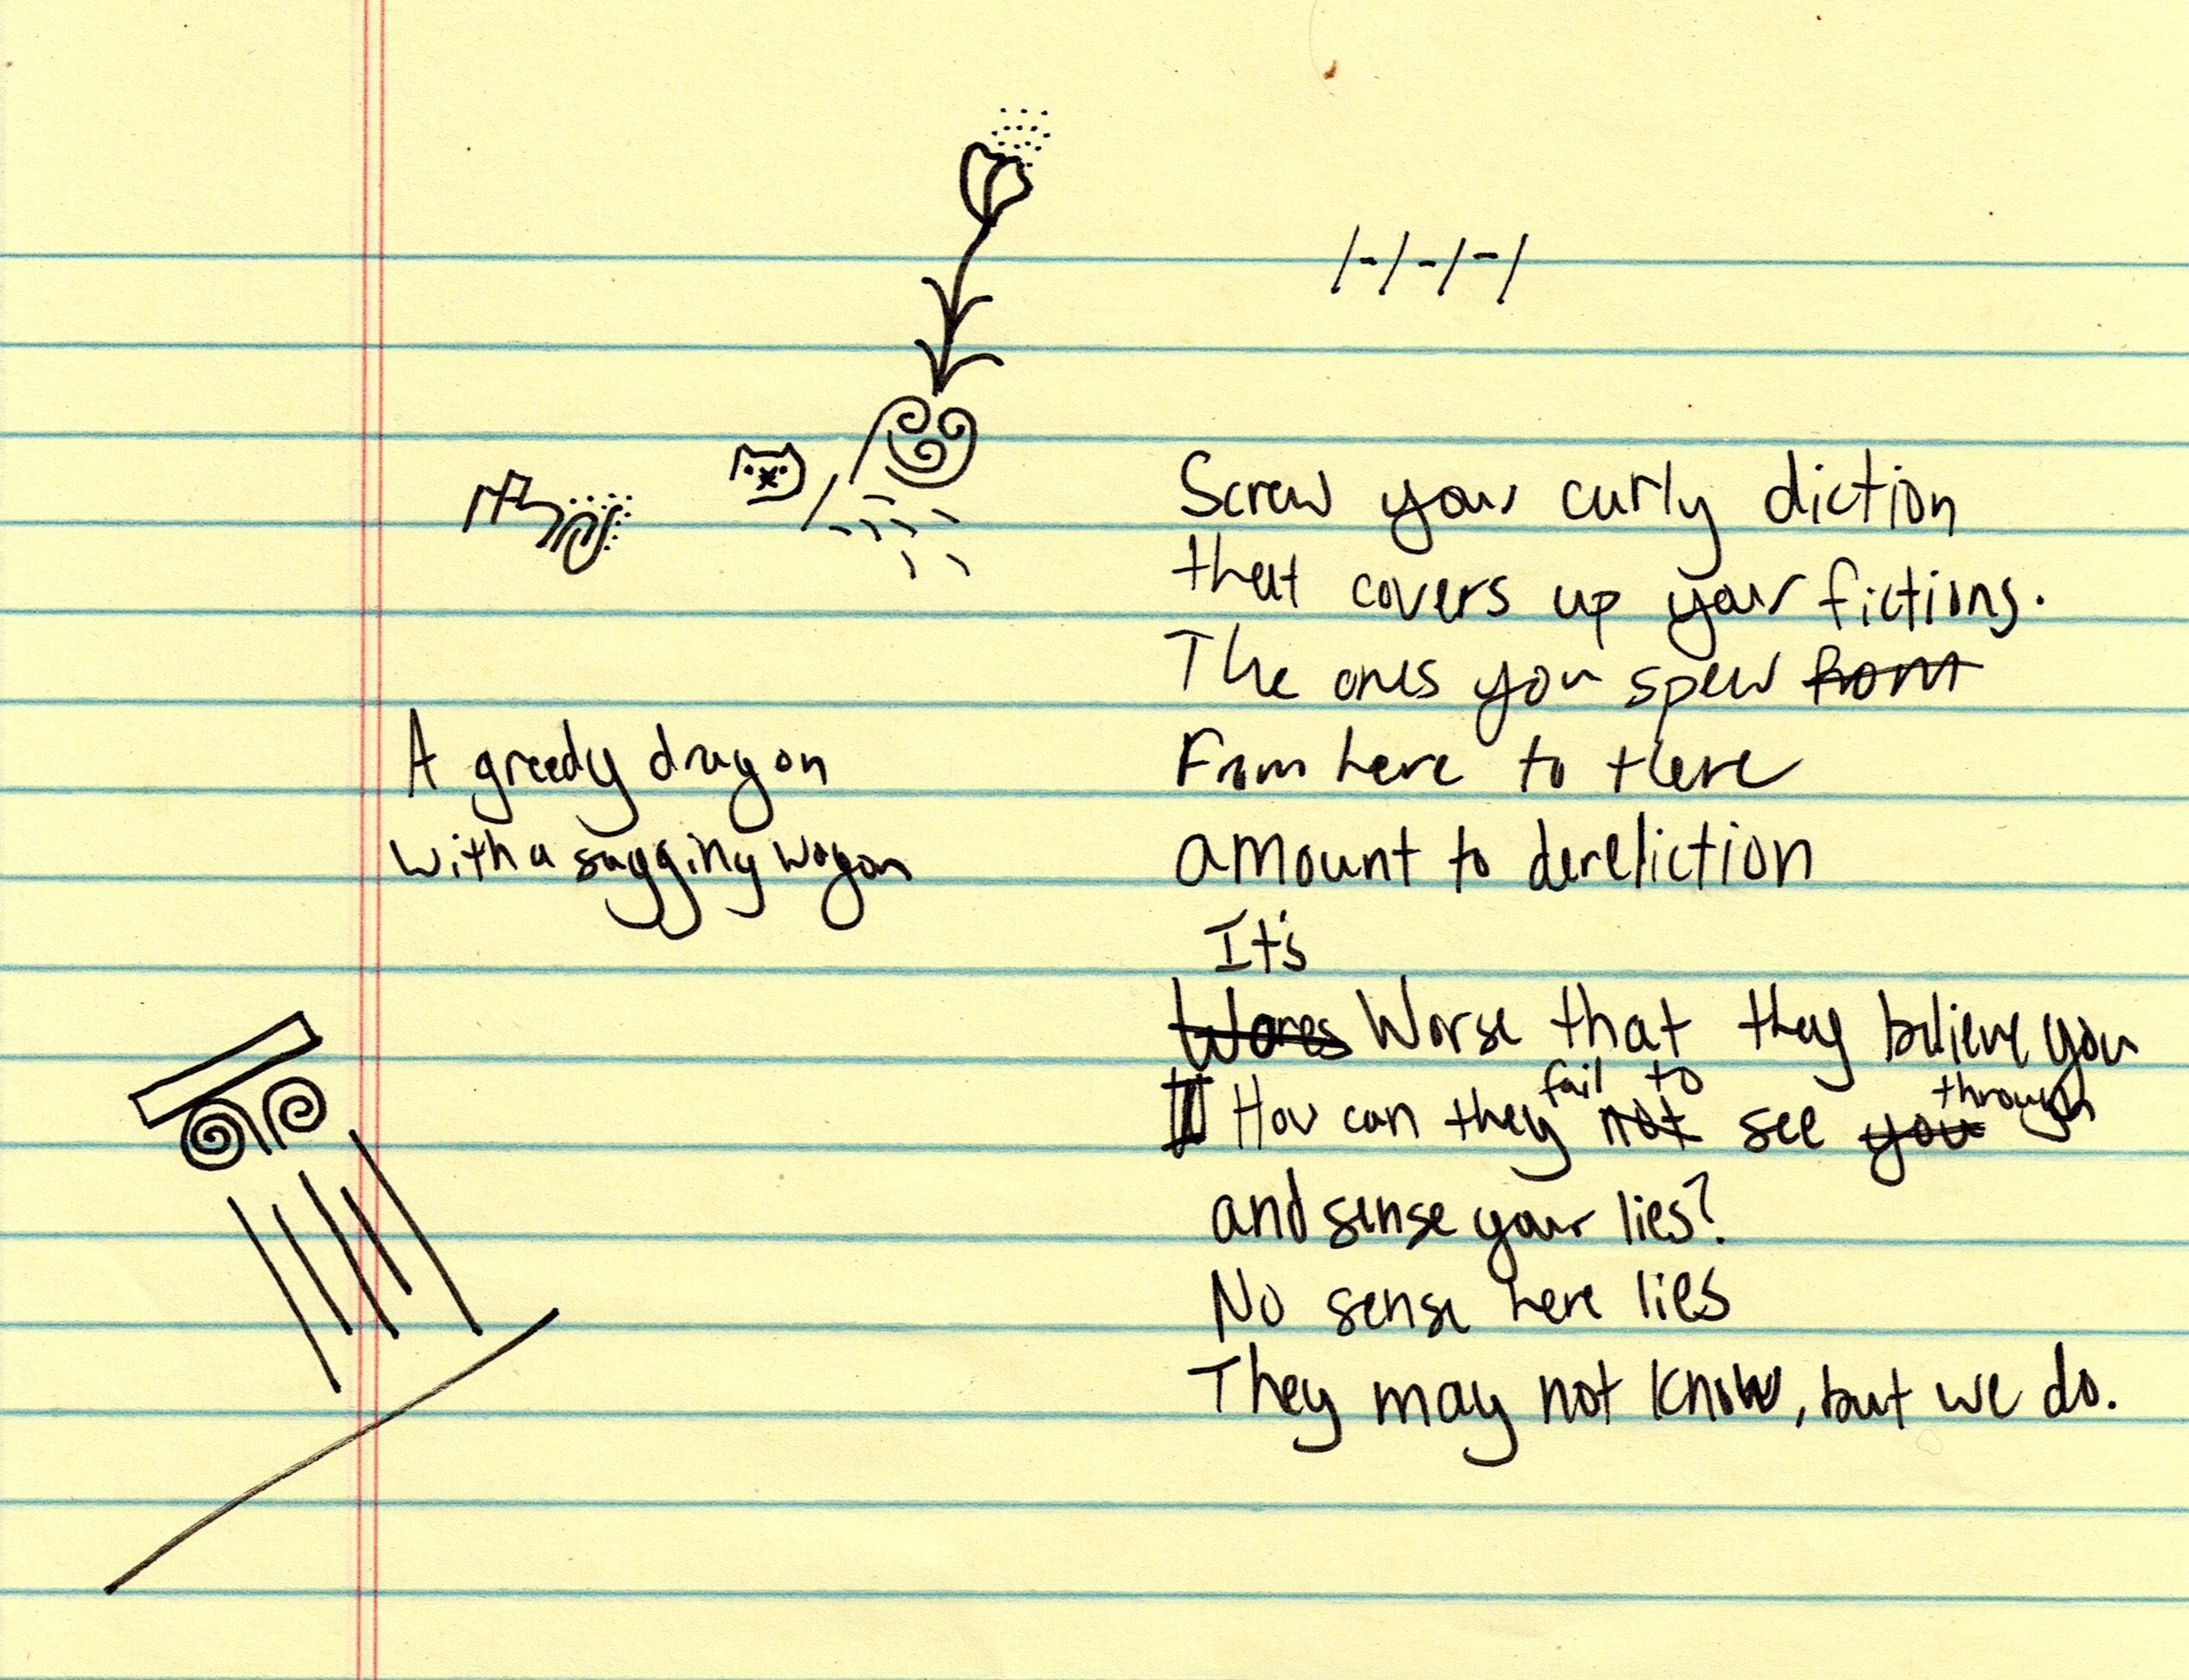 /-/-/-/
Screw your curly diction
that covers up your fictions.
The ones you spew from
From here to there
amount to dereliction
It's
Wores Worse that they believe you
How can they not fail to see you through
and sense your lies?
No sense here lies
They may not know, but we do.
A greedy dragon
with a sagging wagon